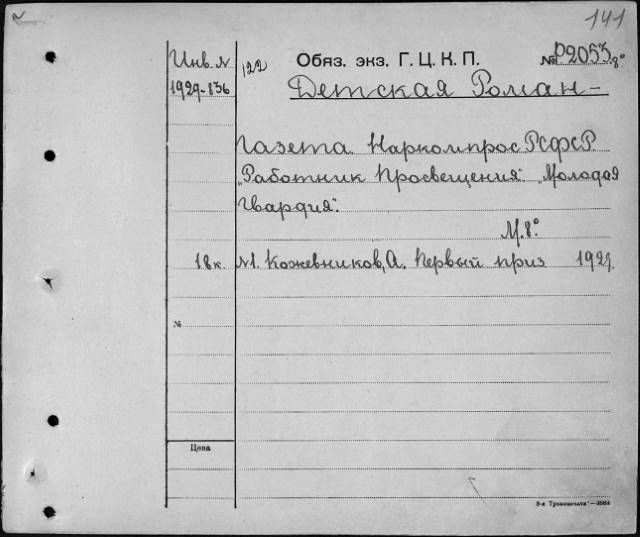 141
Инв. N 122 Обяз. экз. Г. Ц. К. П. № Р2055 8°
1929-836 Детская Роман-
Газета Наркомпрос РСФСР
„Работник Просвещения". „Молодая
Гвардия".
М. 8°.
18к. N1. Кожевников, А. Первый приз 1929.
№
Цена
3-я Трансвечати"—3664